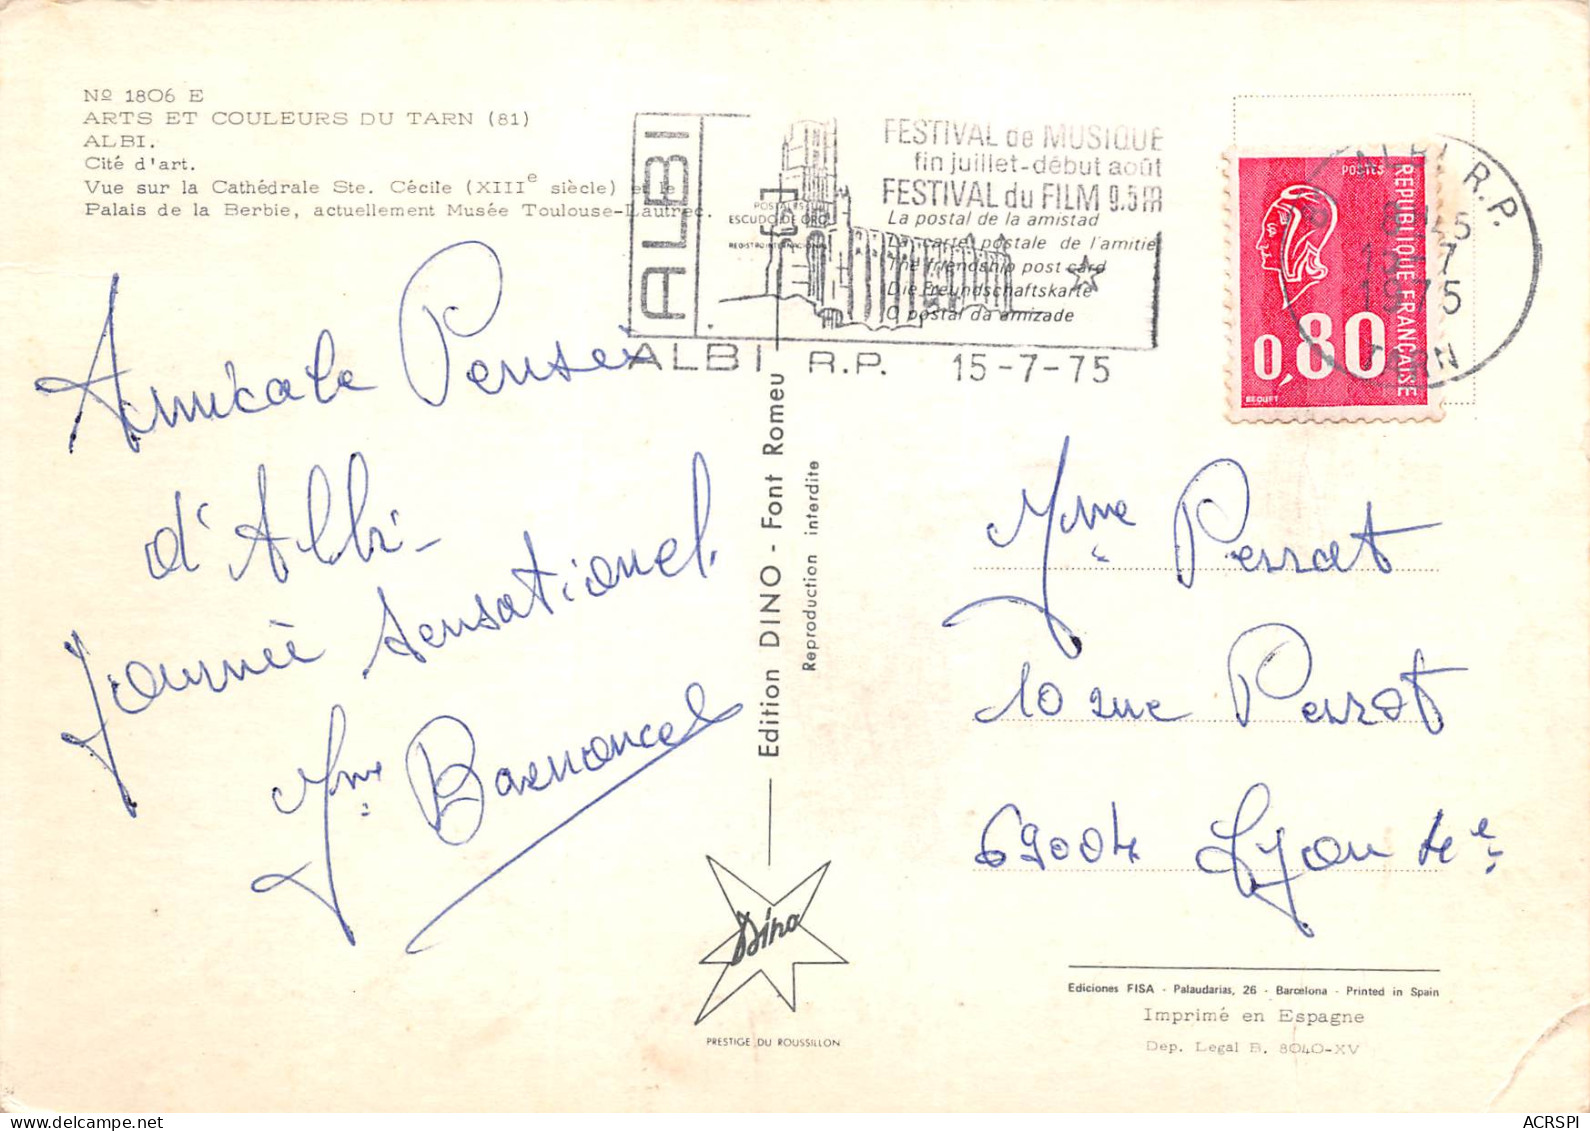 Nº 1806 E
ARTS ET COULEURS DU TARN (81)
ALBI.
Cité d'art.
Vue sur la Cathédrale Ste. Cécile (XIIIe siècle) et le
Palais de la Berbie, actuellement Musée Toulouse-Lautrec.
ALBI
FESTIVAL de MUSIQUE
fin juillet-début août
FESTIVAL du FILM 9.5m
POSTALES
ESCUDO DE ORO
La postal de la amistad
La carte postale de l'amitié
The friendship post card
Die Freundschaftskarte
O postal da amizade
ALBI R.P. 15-7-75
ALBI R.P.
15-7
1975
TARN
POSTES
REPUBLIQUE FRANÇAISE
0,80
BEQUET
Amicale Pensée
d'Albi-
Journée sensationel.
Mme
Mme Perrat
10 rue Perrat
69004 Lyon 4e
Edition DINO - Font Romeu
Reproduction interdite
Dino
PRESTIGE DU ROUSSILLON
Ediciones FISA - Palaudarias, 26 - Barcelona - Printed in Spain
Imprimé en Espagne
Dep. Legal B. 8040-XV
ACRSPI